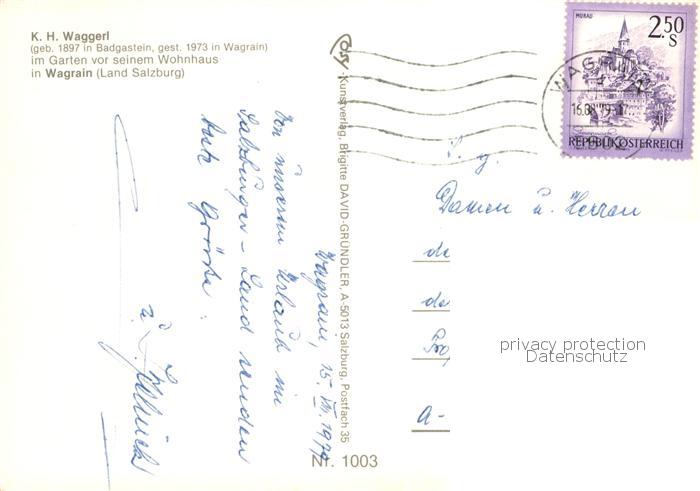 K. H. Waggerl
(geb. 1897 in Badgastein, gest. 1973 in Wagrain)
im Garten vor seinem Wohnhaus
in Wagrain (Land Salzburg)
Wagrain, 15. VIII. 1979
Von unserem Urlaub im
Salzburger-Land senden
herzl. Grüße:
u.
Cosy
Kunstverlag, Brigitte DAVID-GRÜNDLER, A-5013 Salzburg, Postfach 35
Nr. 1003
MURAU
2.50
S
REPUBLIK ÖSTERREICH
WAGRAIN
16.08.79-17
Damen u. Herren
de
de
A-
privacy protection
Datenschutz